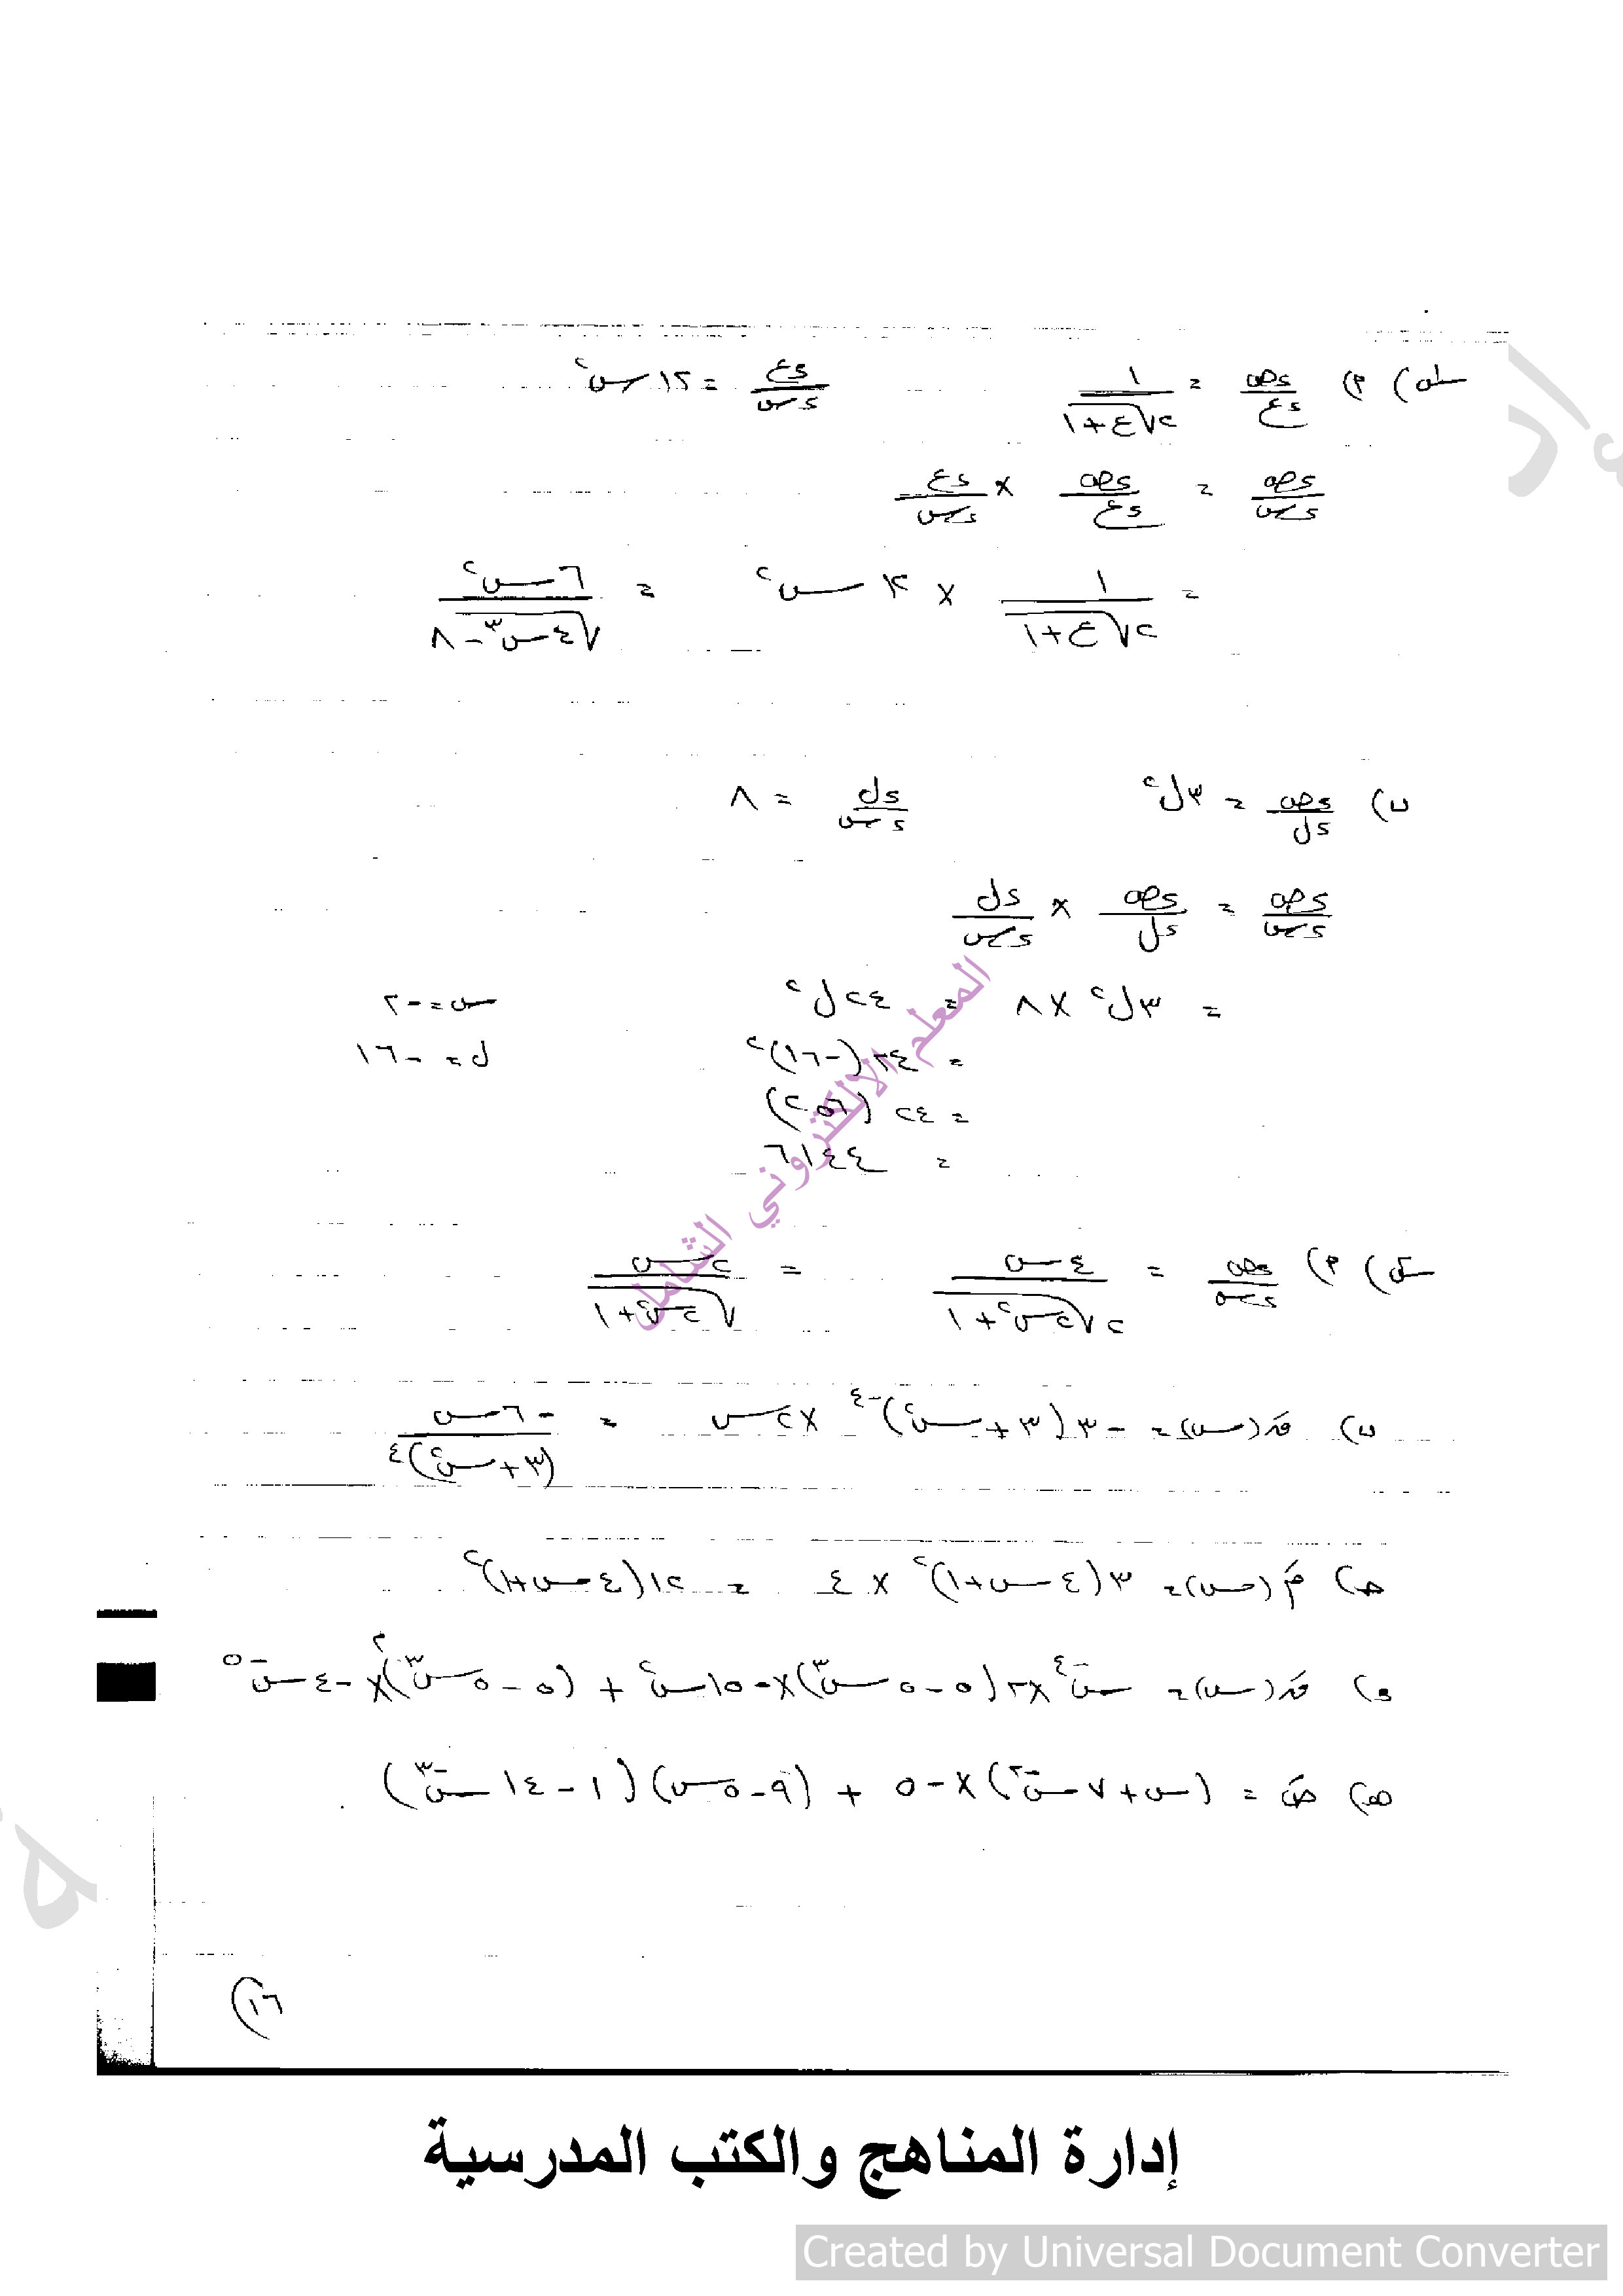 س٥) أ) دص/دع = ١/(٢√(ع+١))    دع/دس = ١٢س^٢
دص/دس = دص/دع × دع/دس
= ١/(٢√(ع+١)) × ١٢س^٢ = ٦س^٢/√(٤س^٣-٨)
ب) دص/دل = ٣ل^٢    دل/دس = ٨
دص/دس = دص/دل × دل/دس
= ٣ل^٢ × ٨ = ٢٤ل^٢    س = -٢
= ٢٤(-١٦)^٢    ل = -١٦
= ٢٤(٢٥٦)
= ٦١٤٤
أ) دص/دس = ٤س/(٢√(٢س^٢+١)) = ٢س/√(٢س^٢+١)
ب) قَ(س) = -٣(٣+س^٢)^-٤ × ٢س = -٦س/(٣+س^٢)^٤
جـ) مَ(س) = ٣(٤س+١)^٢ × ٤ = ١٢(٤س+١)^٢
د) قَ(س) = س^-٤ × ٢(٥-٥س^٣) × -١٥س^٢ + (٥-٥س^٣)^٢ × -٤س^-٥
هـ) صَ = (س+٧س^-٢) × -٥ + (٩-٥س)(١-١٤س^-٣)
(١٦
المعلم الالكتروني الشامل
إدارة المناهج والكتب المدرسية
Created by Universal Document Converter